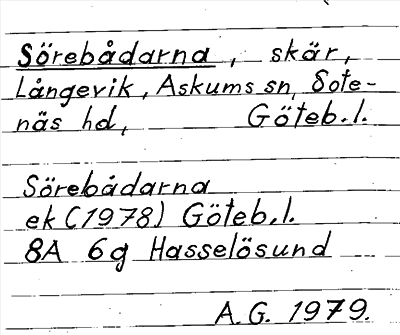 Sörebådarna, skär,
Långevik, Askums sn, Sote-
näs hd, Göteb.l.
Sörebådarna
ek (1978) Göteb.l.
8A 6g Hasselösund
A.G. 1979.